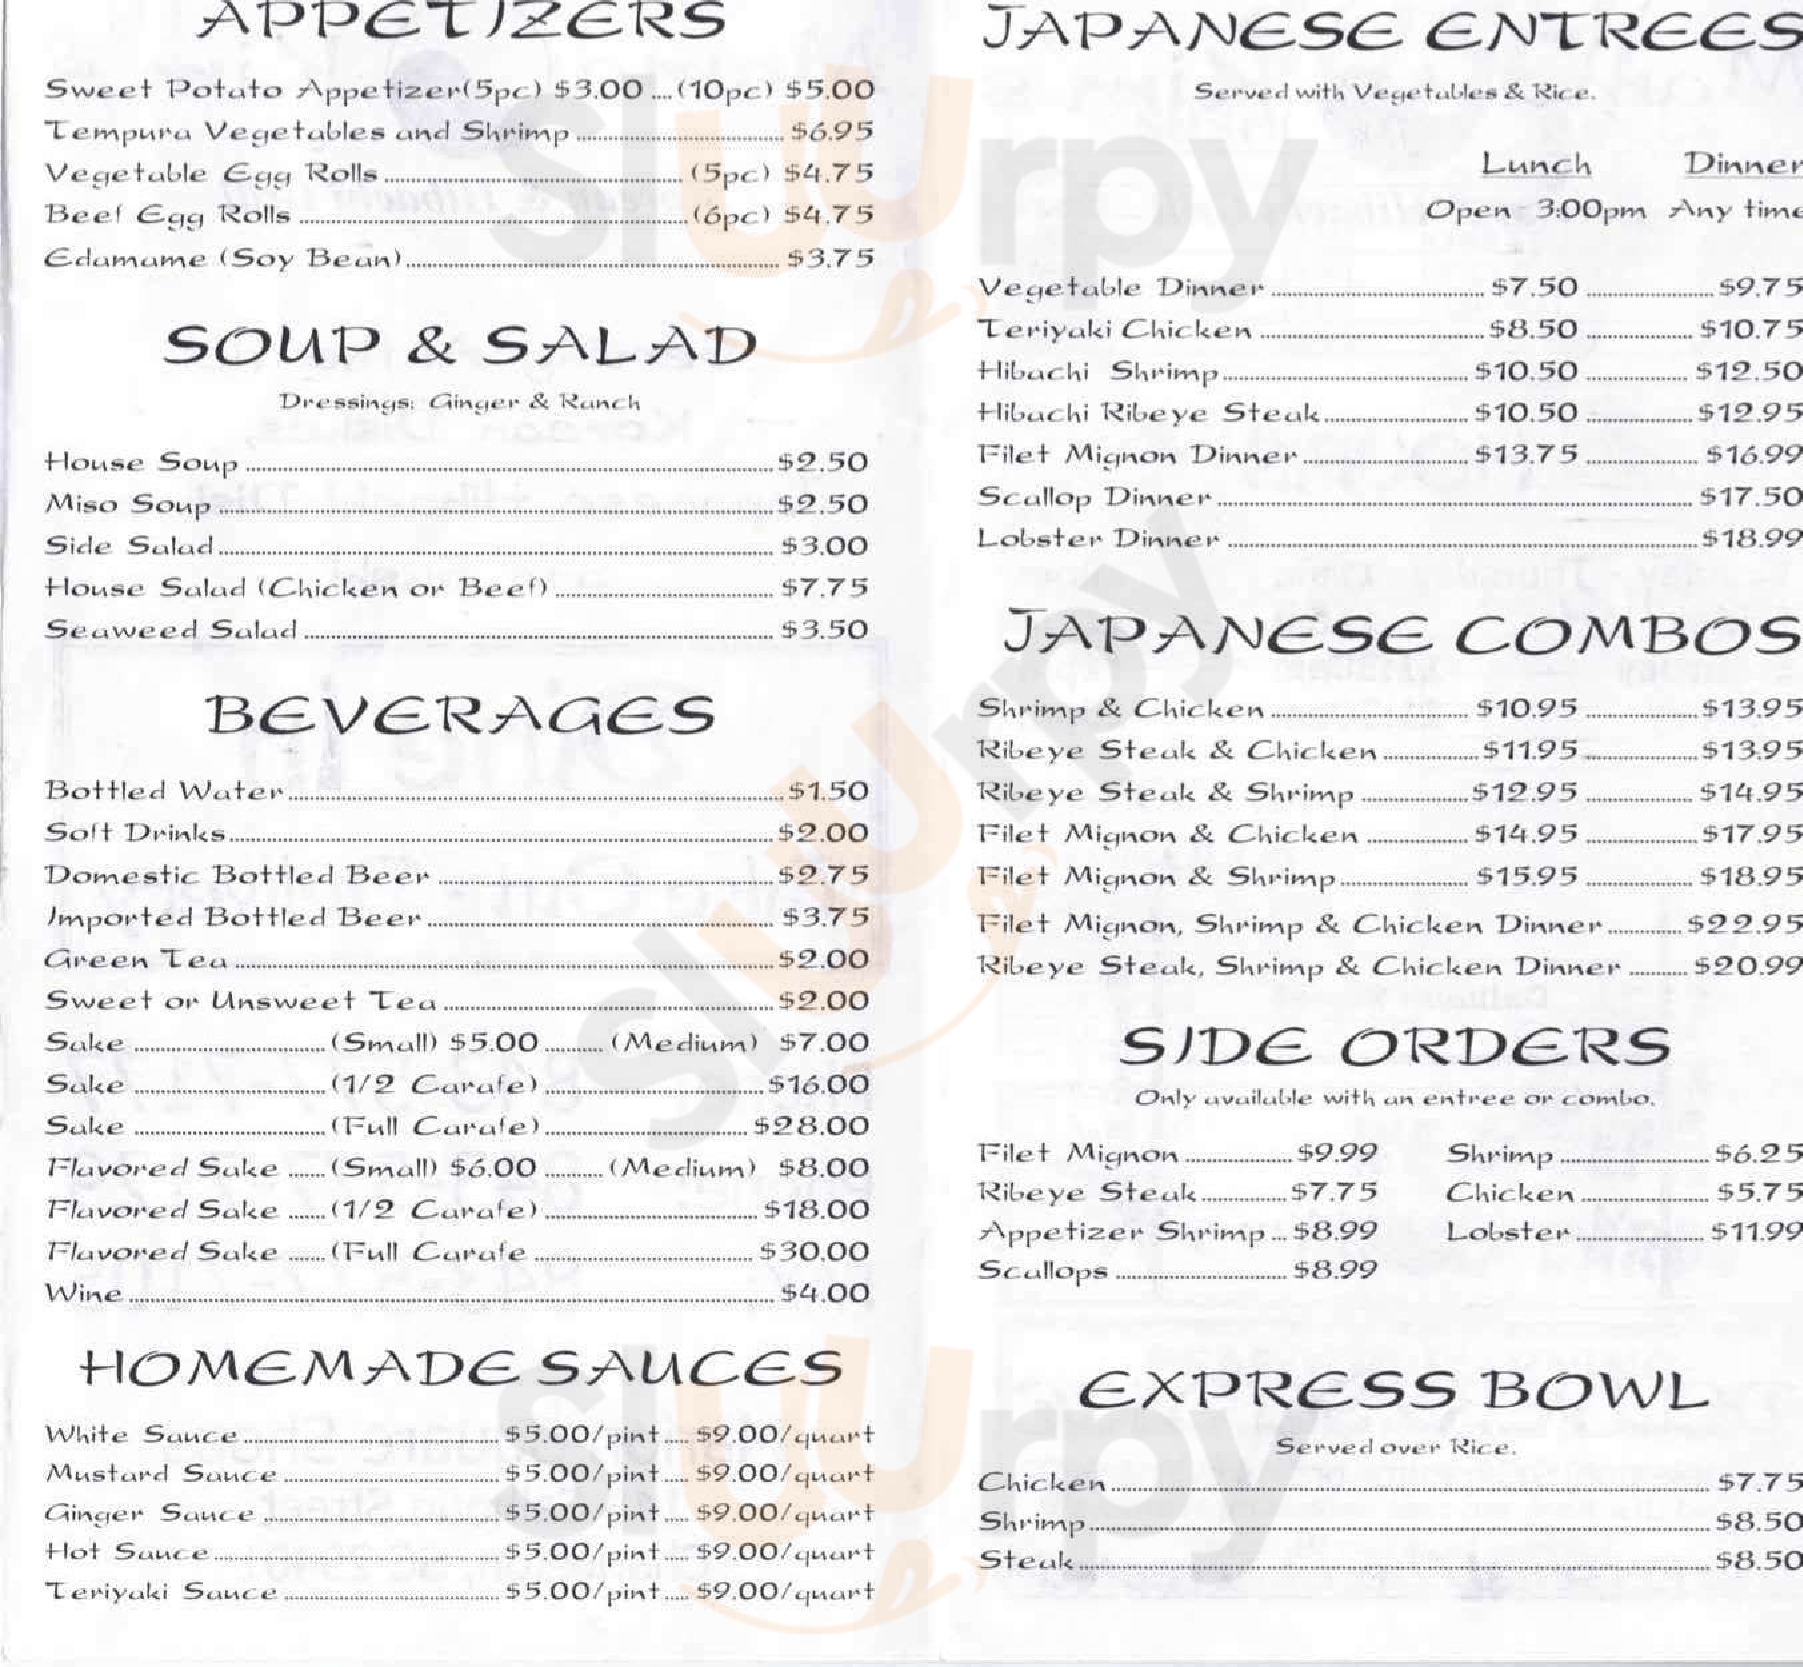 APPETIZERS
Sweet Potato Appetizer(5pc) $3.00 ....(10pc) $5.00
Tempura Vegetables and Shrimp ........ $6.95
Vegetable Egg Rolls ........ (5pc) $4.75
Beef Egg Rolls ........ (6pc) $4.75
Edamame (Soy Bean) ........ $3.75
SOUP & SALAD
Dressings: Ginger & Ranch
House Soup ........ $2.50
Miso Soup ........ $2.50
Side Salad ........ $3.00
House Salad (Chicken or Beef) ........ $7.75
Seaweed Salad ........ $3.50
BEVERAGES
Bottled Water ........ $1.50
Soft Drinks ........ $2.00
Domestic Bottled Beer ........ $2.75
Imported Bottled Beer ........ $3.75
Green Tea ........ $2.00
Sweet or Unsweet Tea ........ $2.00
Sake ........ (Small) $5.00 ........ (Medium) $7.00
Sake ........ (1/2 Carafe) ........ $16.00
Sake ........ (Full Carafe) ........ $28.00
Flavored Sake ...... (Small) $6.00 ........ (Medium) $8.00
Flavored Sake ...... (1/2 Carafe) ........ $18.00
Flavored Sake ...... (Full Carafe ........ $30.00
Wine ........ $4.00
HOMEMADE SAUCES
White Sauce ........ $5.00/pint .... $9.00/quart
Mustard Sauce ........ $5.00/pint .... $9.00/quart
Ginger Sauce ........ $5.00/pint .... $9.00/quart
Hot Sauce ........ $5.00/pint .... $9.00/quart
Teriyaki Sauce ........ $5.00/pint .... $9.00/quart
JAPANESE ENTREES
Served with Vegetables & Rice.
Lunch Dinner
Open 3:00pm Any time
Vegetable Dinner ........ $7.50 ........ $9.75
Teriyaki Chicken ........ $8.50 ........ $10.75
Hibachi Shrimp ........ $10.50 ........ $12.50
Hibachi Ribeye Steak ........ $10.50 ........ $12.95
Filet Mignon Dinner ........ $13.75 ........ $16.99
Scallop Dinner ........ $17.50
Lobster Dinner ........ $18.99
JAPANESE COMBOS
Shrimp & Chicken ........ $10.95 ........ $13.95
Ribeye Steak & Chicken ........ $11.95 ........ $13.95
Ribeye Steak & Shrimp ........ $12.95 ........ $14.95
Filet Mignon & Chicken ........ $14.95 ........ $17.95
Filet Mignon & Shrimp ........ $15.95 ........ $18.95
Filet Mignon, Shrimp & Chicken Dinner ........ $22.95
Ribeye Steak, Shrimp & Chicken Dinner ........ $20.99
SIDE ORDERS
Only available with an entree or combo.
Filet Mignon ........ $9.99 Shrimp ........ $6.25
Ribeye Steak ........ $7.75 Chicken ........ $5.75
Appetizer Shrimp ... $8.99 Lobster ........ $11.99
Scallops ........ $8.99
EXPRESS BOWL
Served over Rice.
Chicken ........ $7.75
Shrimp ........ $8.50
Steak ........ $8.50
Slurpy
Slurpy
Slurpy